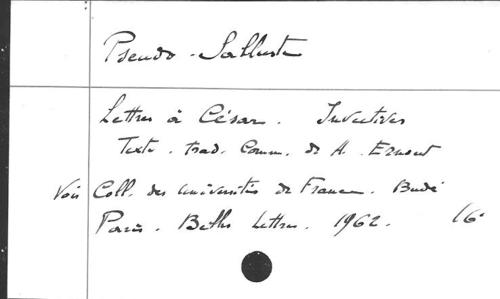 Pseudo-Salluste
Lettres à César. Invectives
Texte. trad. Comm. de A. Ernout
Voir Coll. des Universités de France. Budé
Paris. Belles Lettres. 1962. 16°